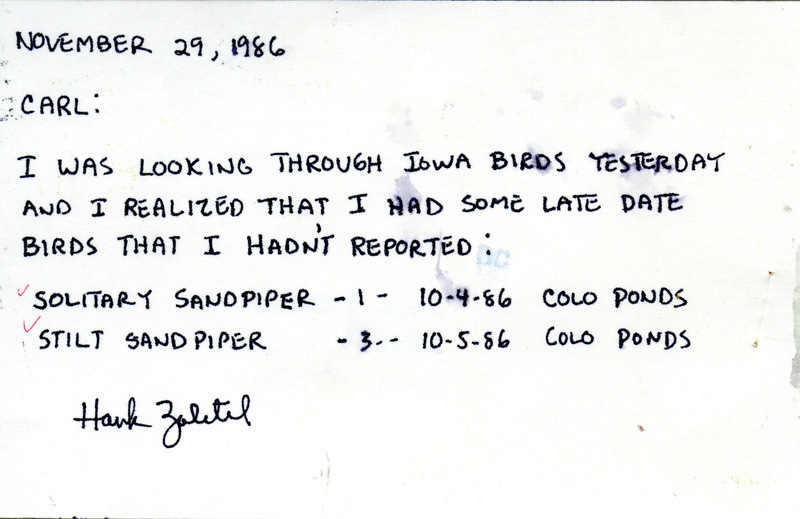 NOVEMBER 29, 1986
CARL:
I WAS LOOKING THROUGH IOWA BIRDS YESTERDAY
AND I REALIZED THAT I HAD SOME LATE DATE
BIRDS THAT I HADN'T REPORTED:
SOLITARY SANDPIPER - 1 - 10-4-86 COLO PONDS
STILT SANDPIPER - 3 - - 10-5-86 COLO PONDS
Hank Zaletel